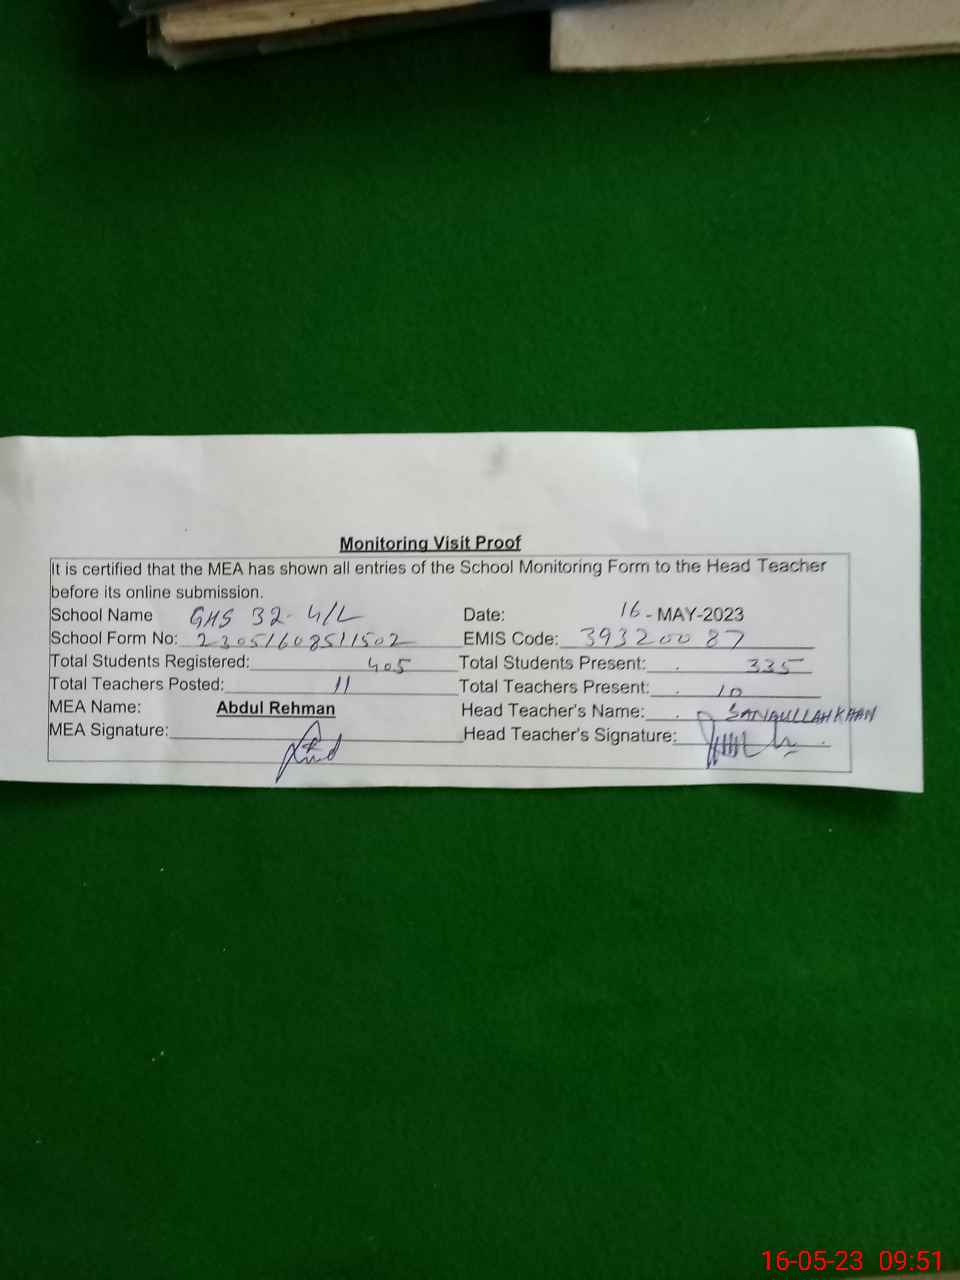 Monitoring Visit Proof
It is certified that the MEA has shown all entries of the School Monitoring Form to the Head Teacher
before its online submission.
School Name GHS 32-4/L Date: 16-MAY-2023
School Form No: 23051608511502 EMIS Code: 39320087
Total Students Registered: 405 Total Students Present: 335
Total Teachers Posted: 11 Total Teachers Present: 10
MEA Name: Abdul Rehman Head Teacher's Name: SANAULLAH KHAN
MEA Signature: Head Teacher's Signature:
16-05-23 09:51